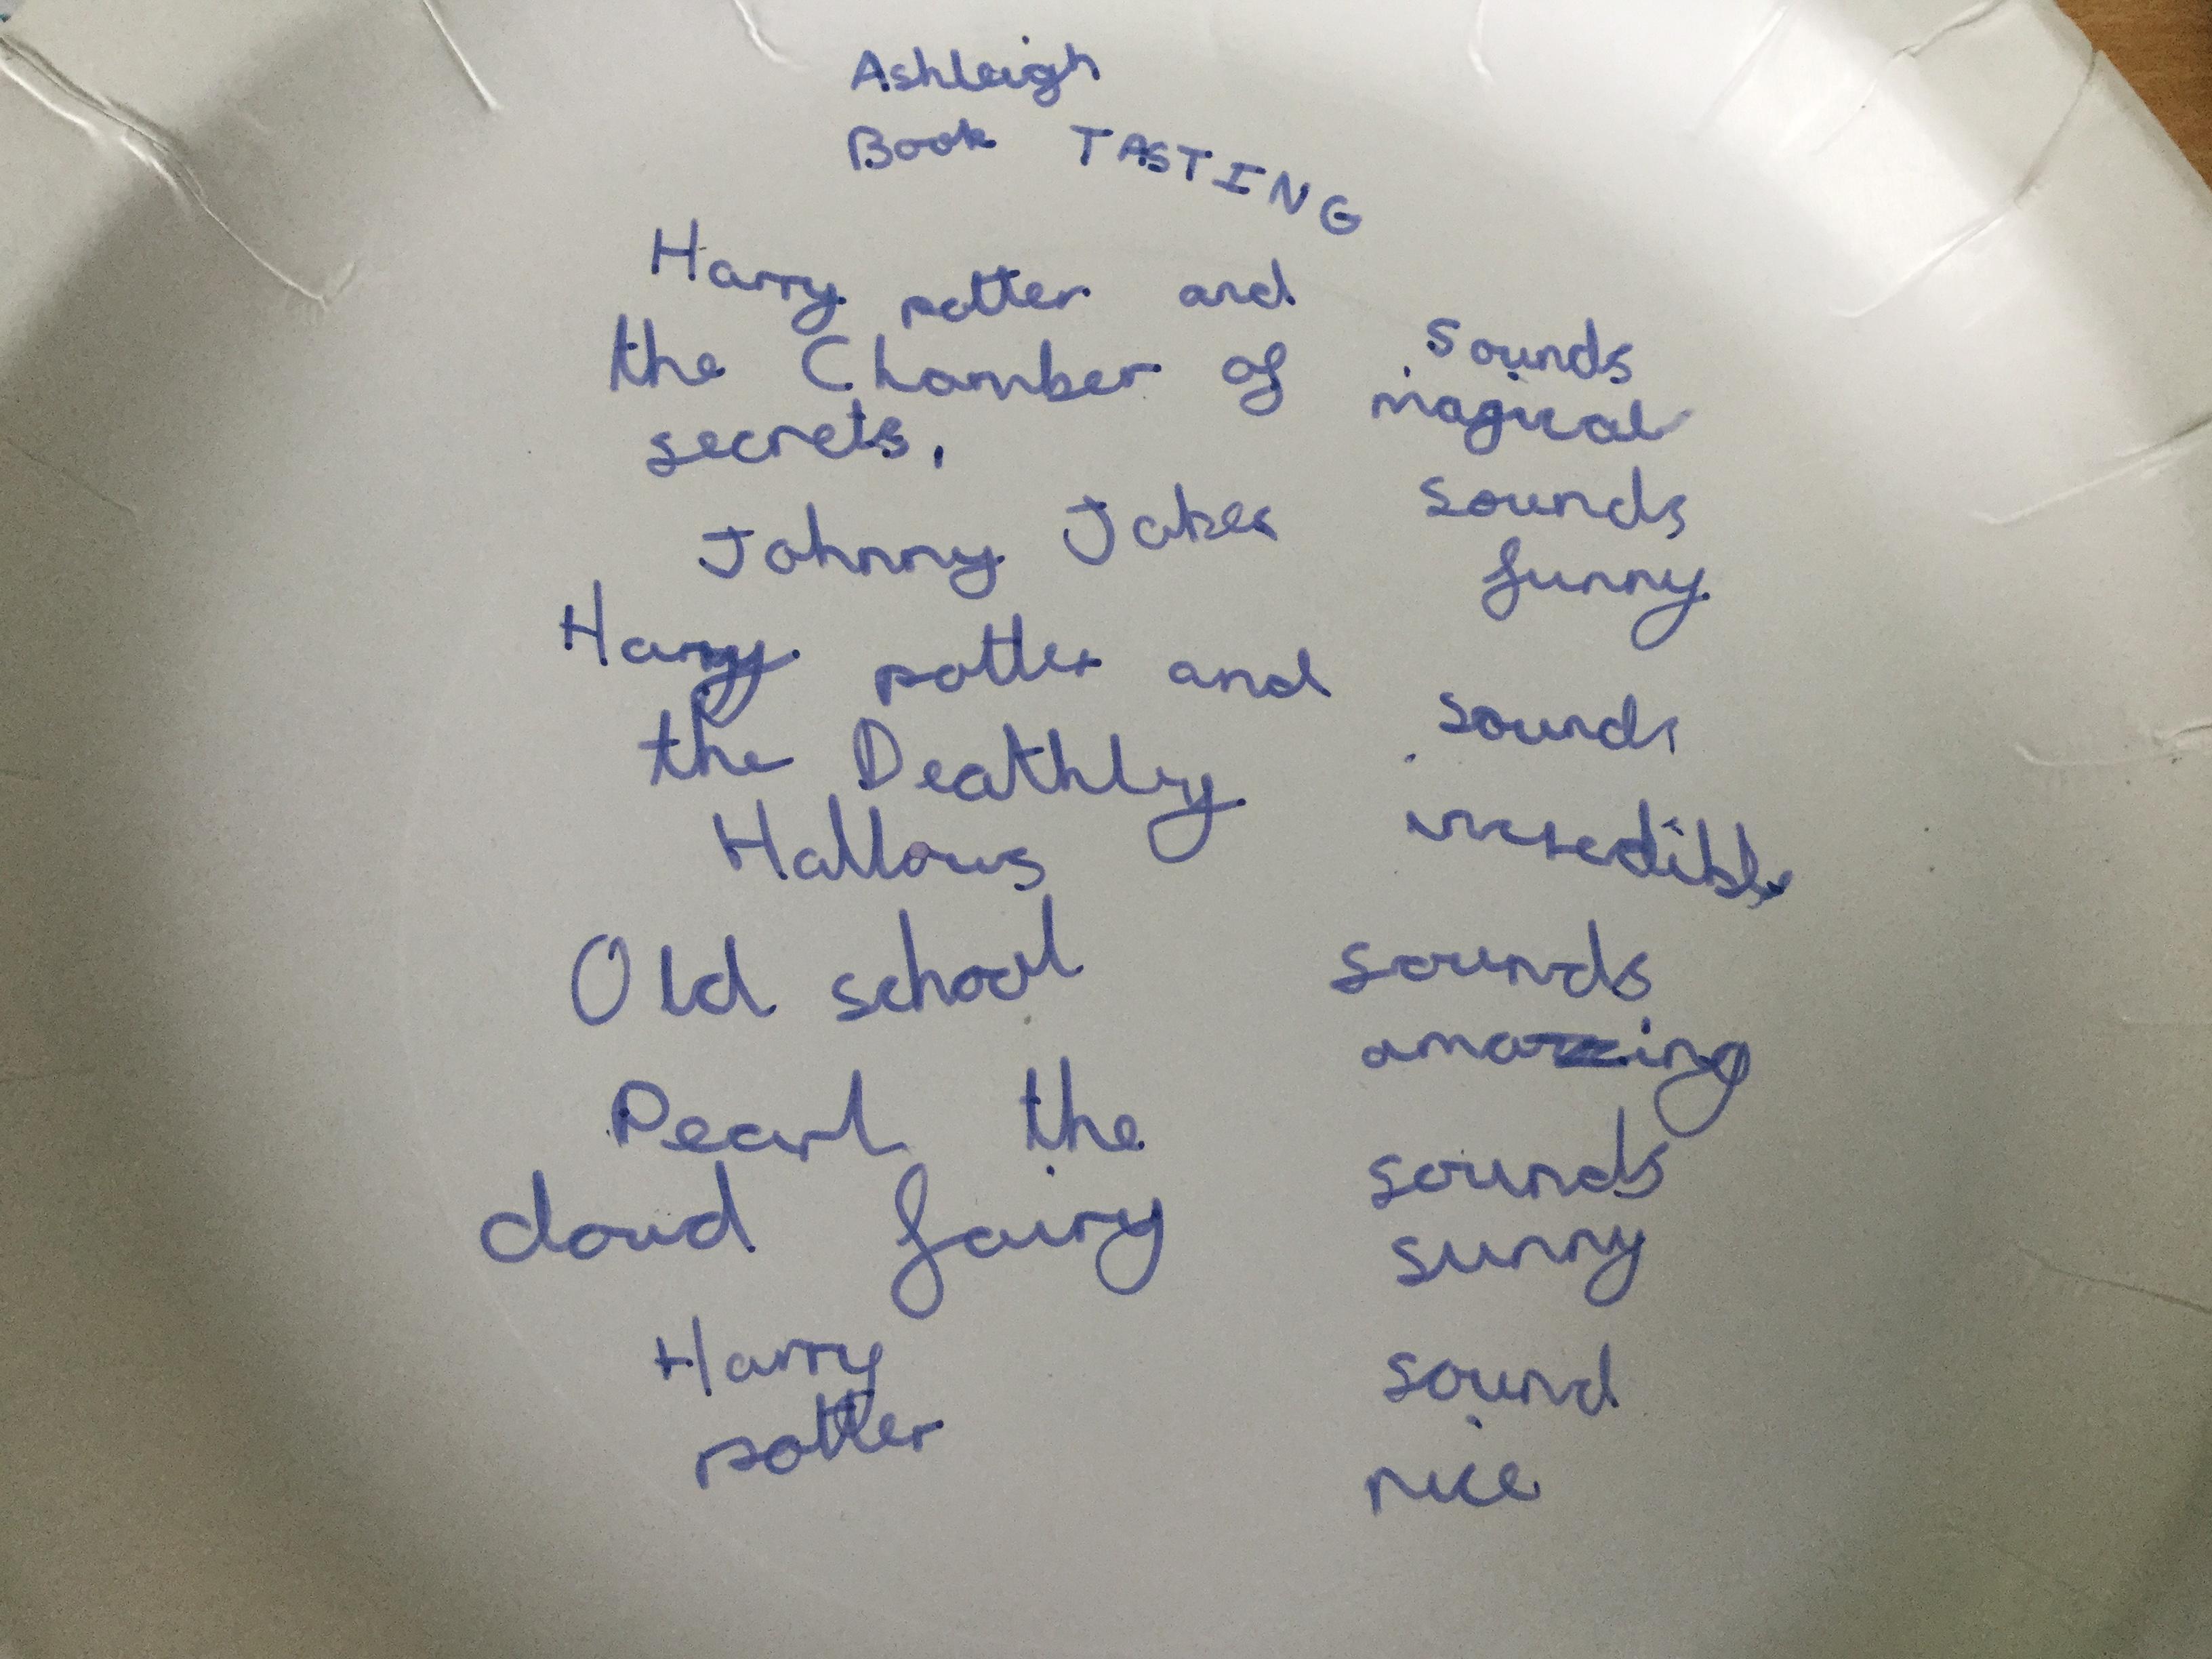 Ashleigh
Book TASTING
Harry potter and
the Chamber of
secrets,
sounds
magical
Johnny Jakes
sounds
funny
Harry potter and
the Deathly
Hallows
sounds
incredible
Old school
sounds
amazing
Pearl the
cloud fairy
sounds
sunny
Harry
potter
sound
nice